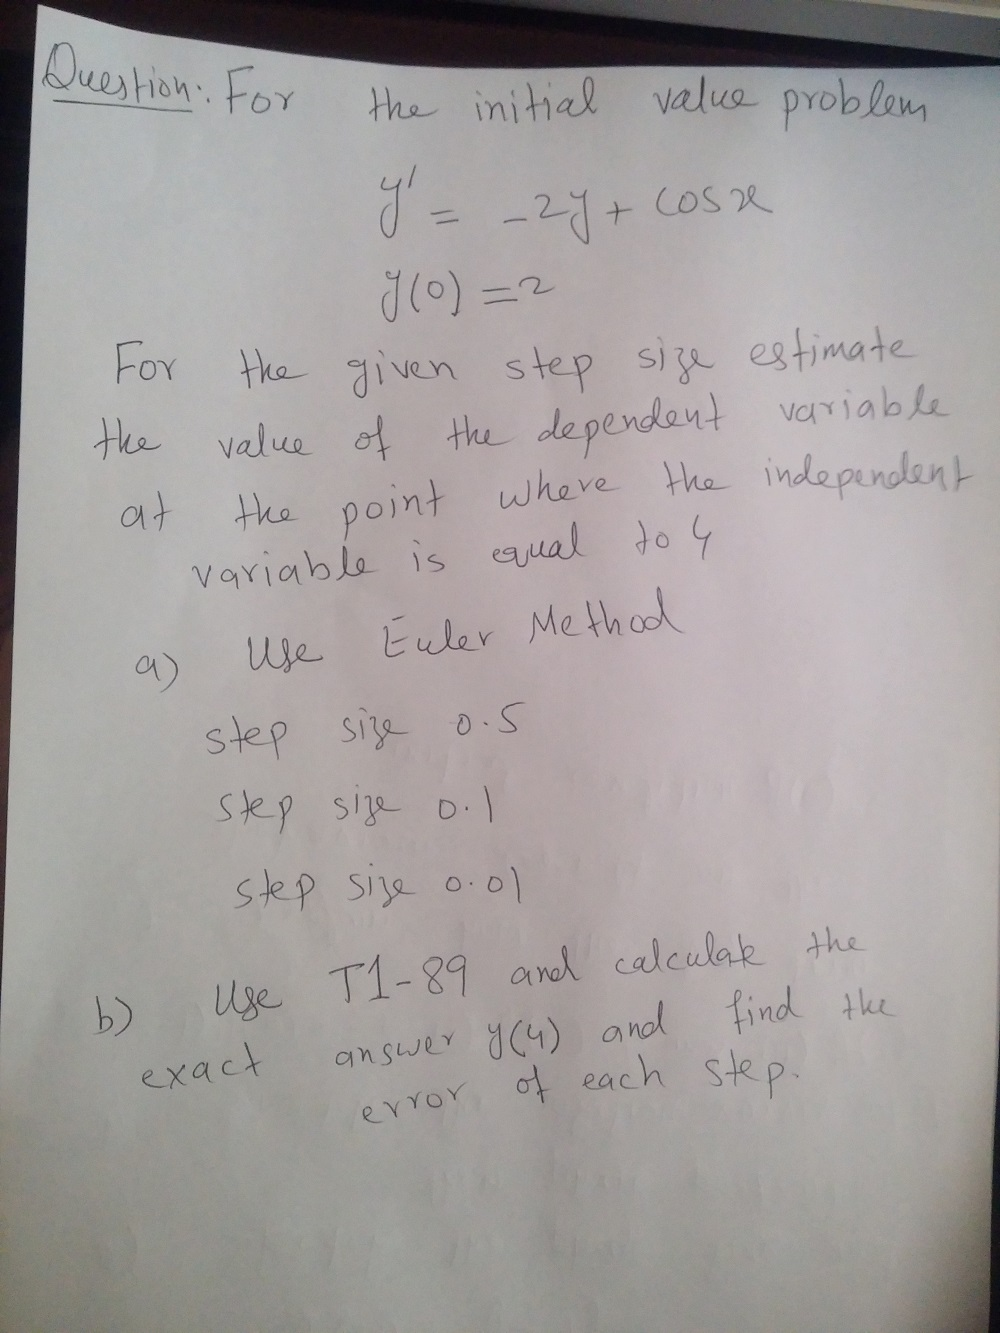 Question: For the initial value problem
y' = -2y + cosx
y(0) = 2
For the given step size estimate
the value of the dependent variable
at the point where the independent
variable is equal to 4
a) Use Euler Method
step size 0.5
step size 0.1
step size 0.01
b) Use T1-89 and calculate the
exact answer y(4) and find the
error of each step.